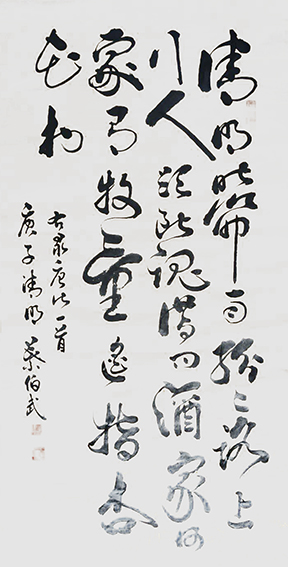 清明時節雨紛〻路上
行人欲斷魂借問酒家何
處有牧童遙指杏
花村
右录唐诗一首
庚子清明 蔡伯武